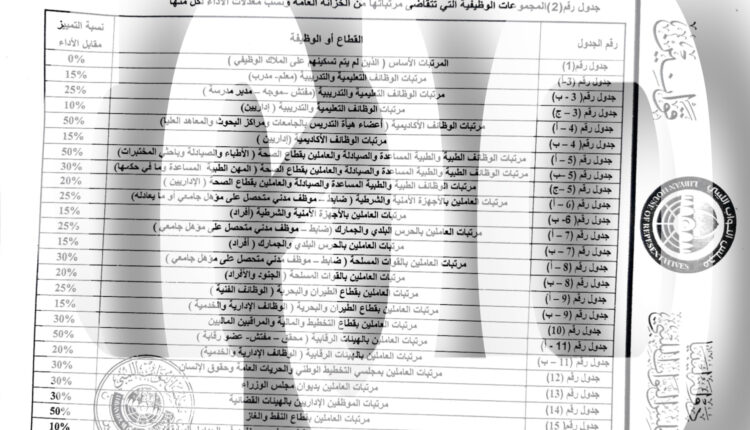 جدول رقم(2) المجموعات الوظيفية التي تتقاضى مرتباتها من الخزانة العامة ونسب معدلات الأداء لكل منها
رقم الجدول القطاع أو الوظيفة نسبة التمييز مقابل الأداء
جدول رقم(1) المرتبات الأساس ( الذين لم يتم تسكينهم على الملاك الوظيفي ) 0%
جدول رقم(3-أ) مرتبات الوظائف التعليمية والتدريبية (معلم- مدرب) 15%
جدول رقم( 3 - ب) مرتبات الوظائف التعليمية والتدريبية (مفتش -موجه – مدير مدرسة ) 25%
جدول رقم(3 – ج) مرتبات الوظائف التعليمية والتدريبية ( إداريين) 10%
جدول رقم(4 – أ) مرتبات الوظائف الأكاديمية ( أعضاء هيأة التدريس بالجامعات ومراكز البحوث والمعاهد العليا) 50%
جدول رقم(4 – ب) مرتبات الوظائف الأكاديمية (إداريين ) 15%
جدول رقم(5 – أ) مرتبات الوظائف الطبية والطبية المساعدة والصيادلة والعاملين بقطاع الصحة ( الأطباء والصيادلة وباحثي المختبرات) 50%
جدول رقم(5 –ب) مرتبات الوظائف الطبية والطبية المساعدة والصيادلة والعاملين بقطاع الصحة ( المهن الطبية المساعدة وما في حكمها) 30%
جدول رقم(5 –ج) مرتبات الوظائف الطبية والطبية المساعدة والصيادلة والعاملين بقطاع الصحة ( الإداريين ) 20%
جدول رقم(6 – أ) مرتبات العاملين بالأجهزة الأمنية والشرطية (ضابط – موظف مدني متحصل على مؤهل جامعي أو ما يعادله) 25%
جدول رقم(6- ب) مرتبات العاملين بالأجهزة الأمنية والشرطية (أفراد) 15%
جدول رقم(7 – أ) مرتبات العاملين بالحرس البلدي والجمارك (ضابط – موظف مدني متحصل على مؤهل جامعي ) 25%
جدول رقم(7 – ب) مرتبات العاملين بالحرس البلدي والجمارك ( أفراد) 15%
جدول رقم(8 – أ) مرتبات العاملين بالقوات المسلحة ( ضابط – موظف مدني متحصل على مؤهل جامعي ) 30%
جدول رقم(8 – ب) مرتبات العاملين بالقوات المسلحة ( الجنود والأفراد) 20%
جدول رقم(9 – أ) مرتبات العاملين بقطاع الطيران والبحرية ( الوظائف الفنية ) 25%
جدول رقم(9 – ب) مرتبات العاملين بقطاع الطيران والبحرية ( الوظائف الإدارية والخدمية ) 15%
جدول رقم(10) مرتبات العاملين بقطاع التخطيط والمالية والمراقبين الماليين 30%
جدول رقم(11 - أ) مرتبات العاملين بالهيئات الرقابية ( محقق – مفتش- عضو رقابة ) 50%
جدول رقم(11 – ب) مرتبات العاملين بالهيئات الرقابية ( الوظائف الإدارية والخدمية) 20%
جدول رقم(12) مرتبات العاملين بمجلسي التخطيط الوطني والحريات العامة وحقوق الإنسان
جدول رقم (13) مرتبات العاملين بديوان مجلس الوزراء 30%
جدول رقم (14) مرتبات الموظفين الإداريين بالهيئات القضائية 30%
جدول رقم (15) مرتبات العاملين بقطاع النفط والغاز 50%
10%
LIBYAN HOUSE OF REPRESENTATIVES
مجلس النواب الليبي